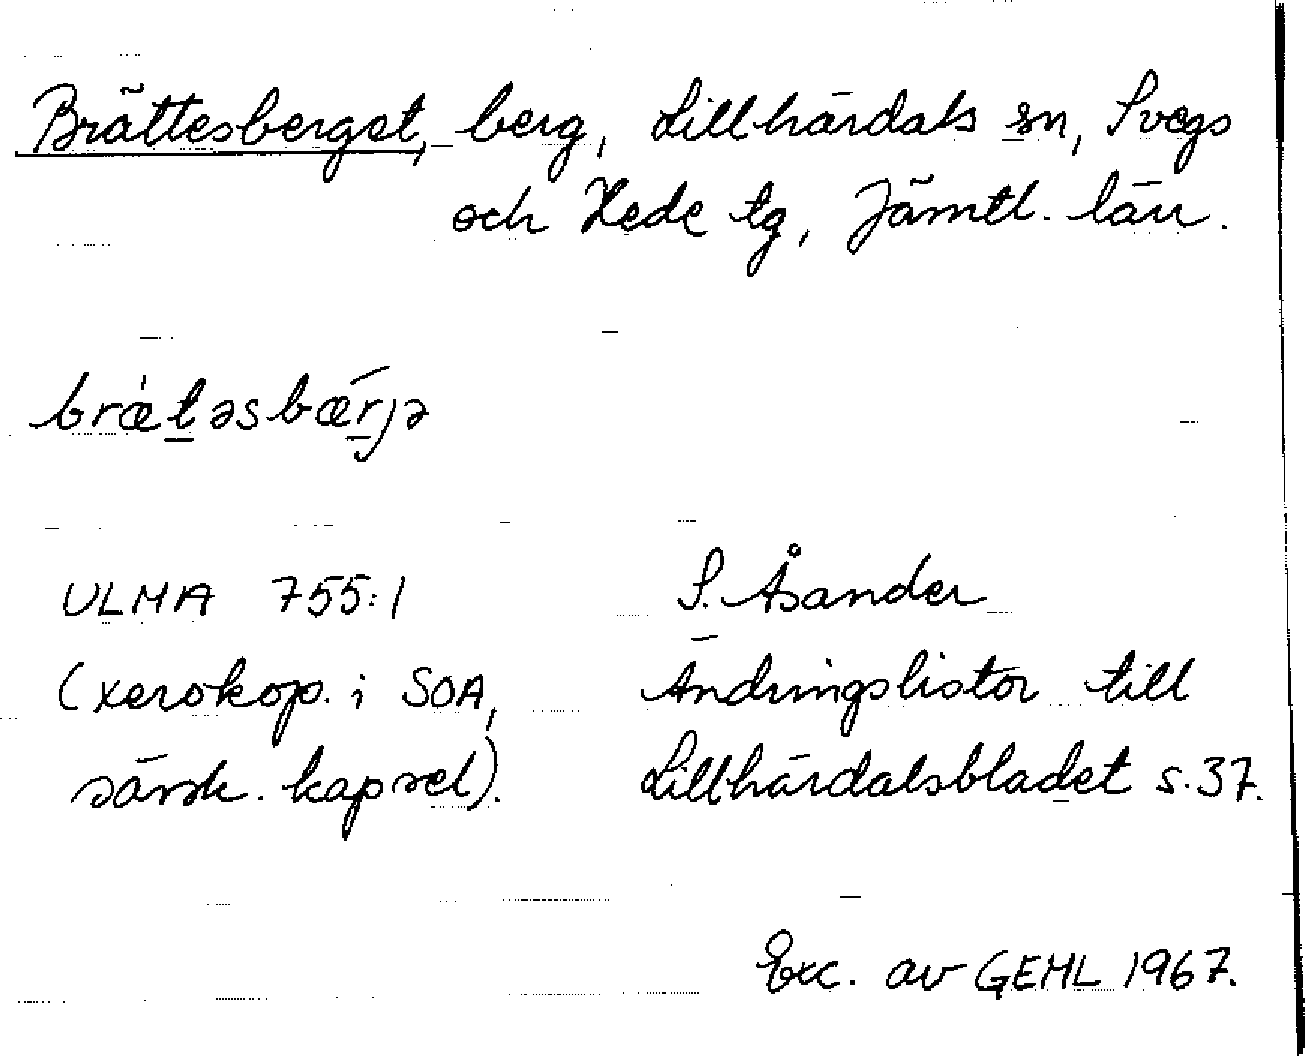 Brättesberget, berg, Lillhärdals sn, Svegs
och Hede tg, Jämtl. län.
bræ̀t̲əsbær̲jə
ULMA 755:1
(xerokop. i SOA,
särsk. kapsel).
S. Åsander
Ändringslistor till
Lillhärdalsbladet s. 37.
Exc. av GEHL 1967.